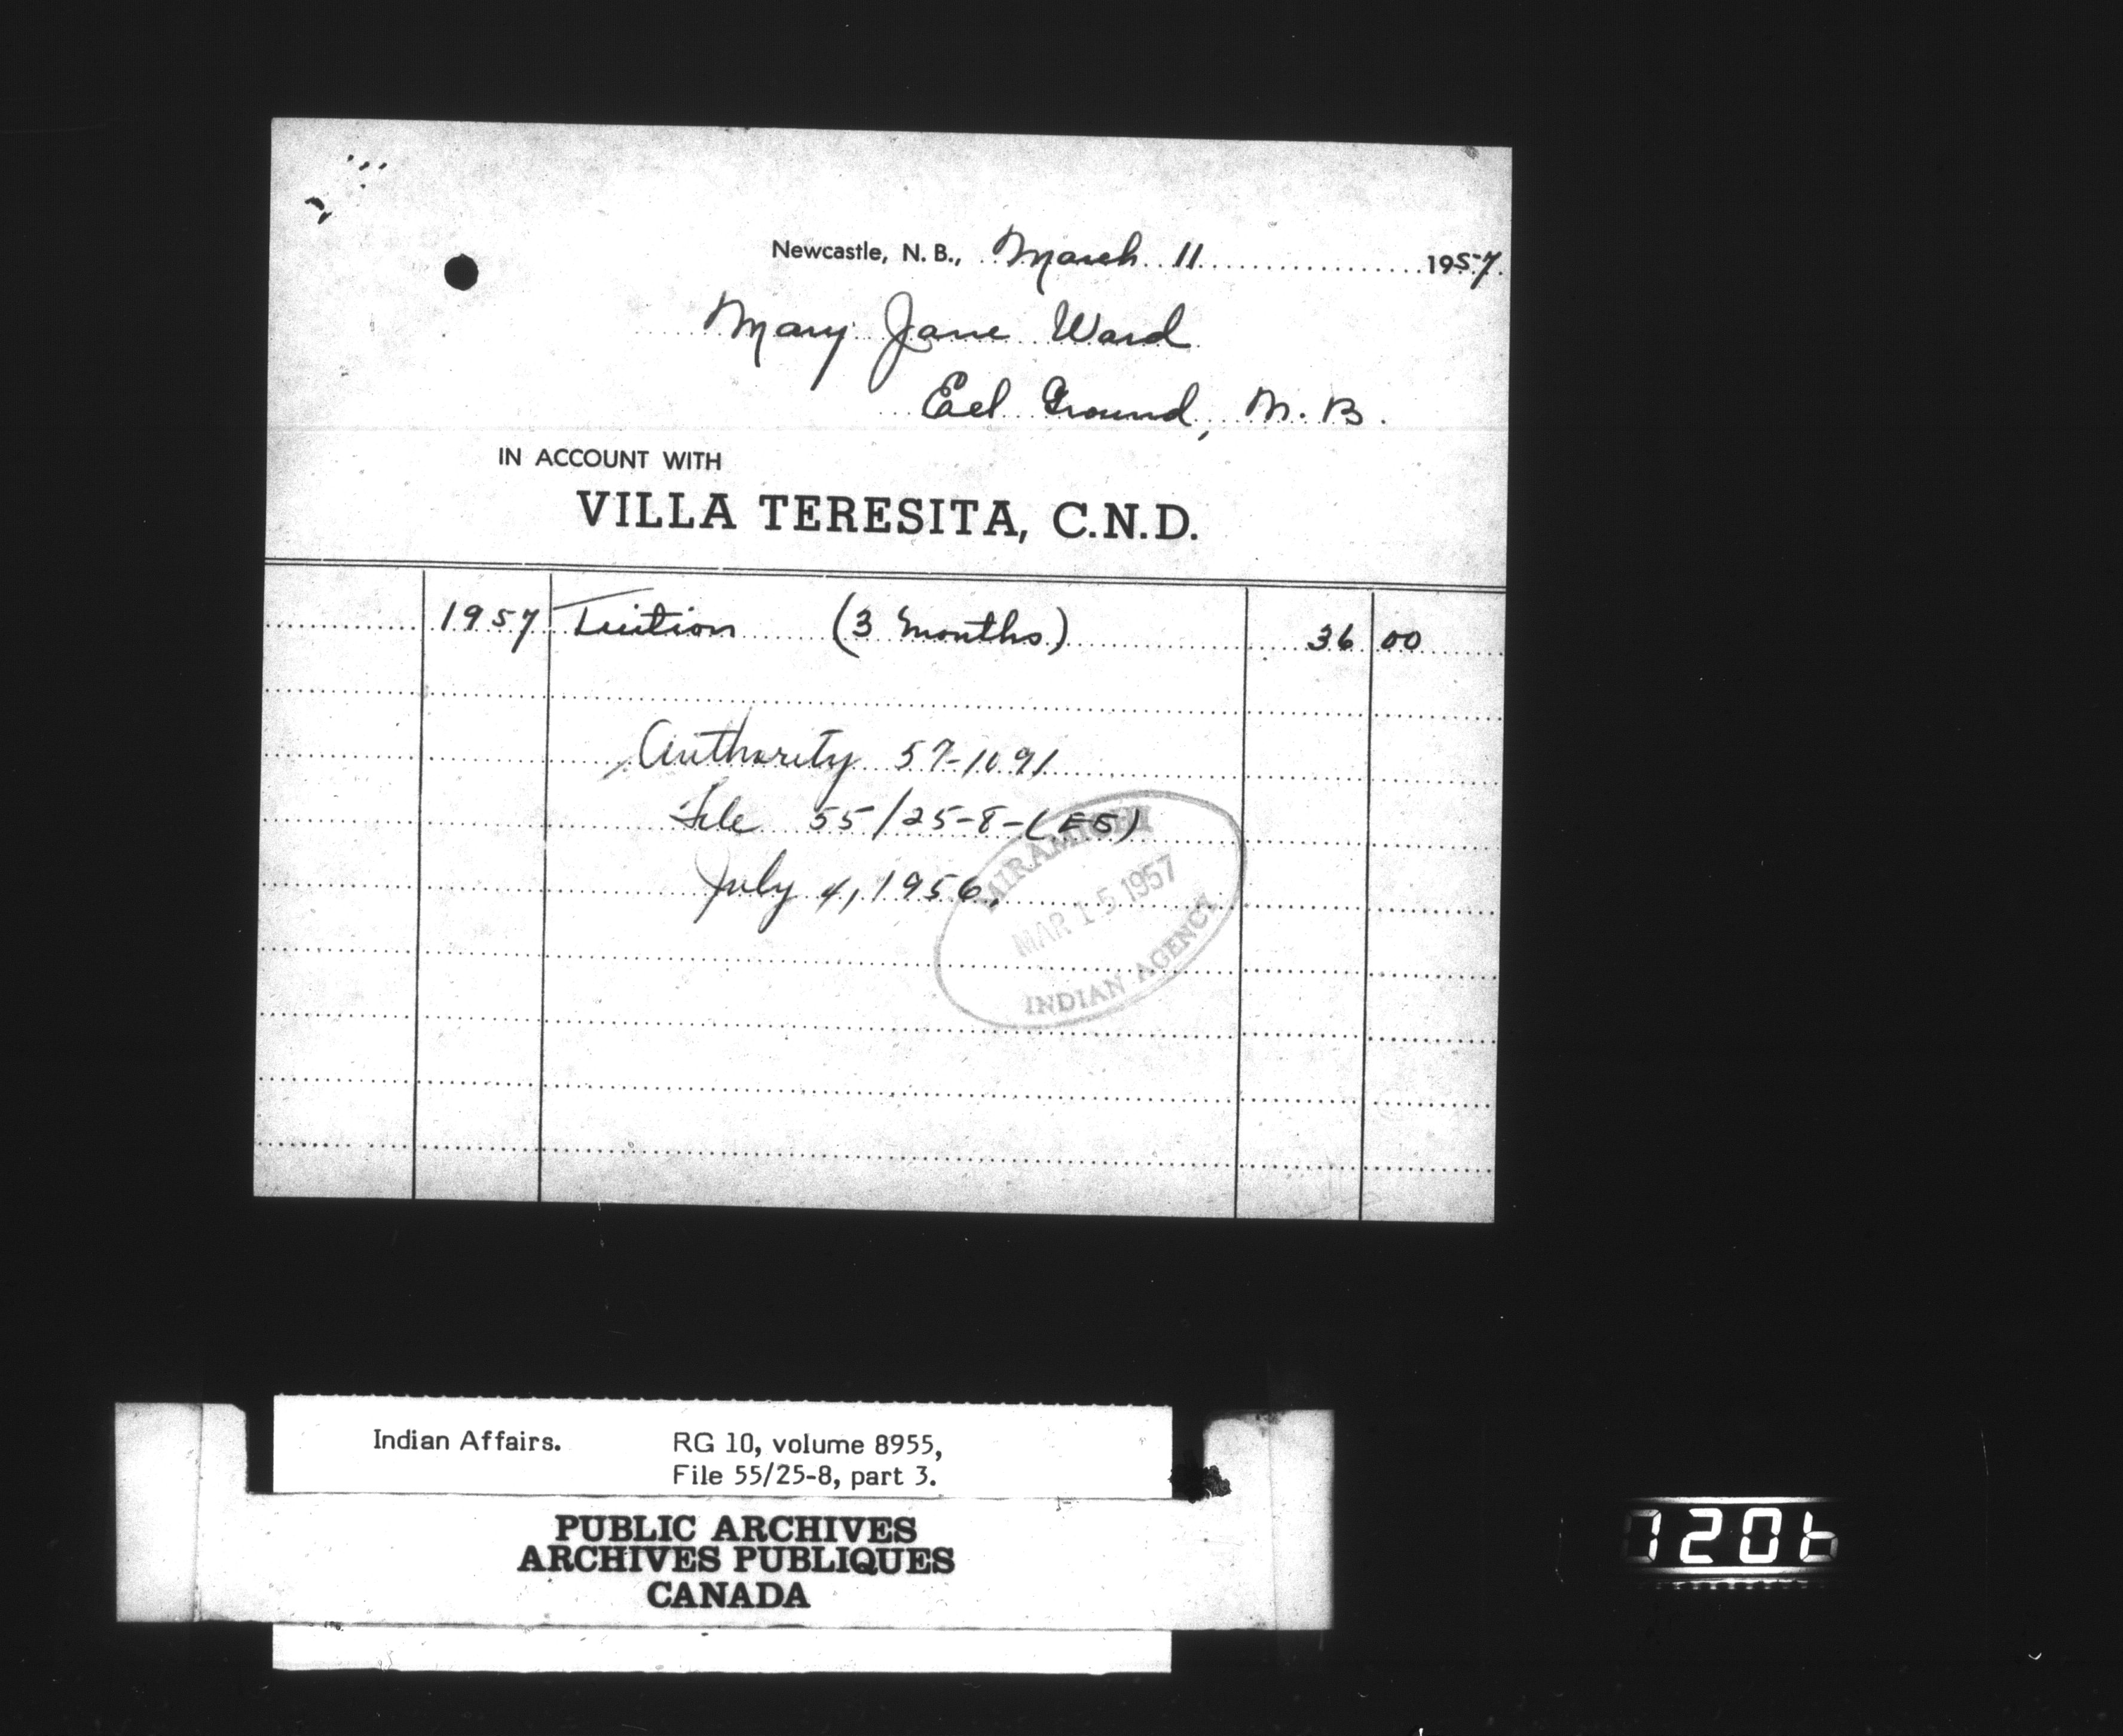 Newcastle, N. B., March 11 1957.
Mary Jane Ward
Eel Ground, N. B.
IN ACCOUNT WITH
VILLA TERESITA, C.N.D.
1957 Tuition (3 months) 36 00
Authority 57-1091
File 55/25-8-(E5)
July 4, 1956.
MIRAMICHI
MAR 15 1957
INDIAN AGENCY
Indian Affairs. RG 10, volume 8955,
File 55/25-8, part 3.
PUBLIC ARCHIVES
ARCHIVES PUBLIQUES
CANADA
1206